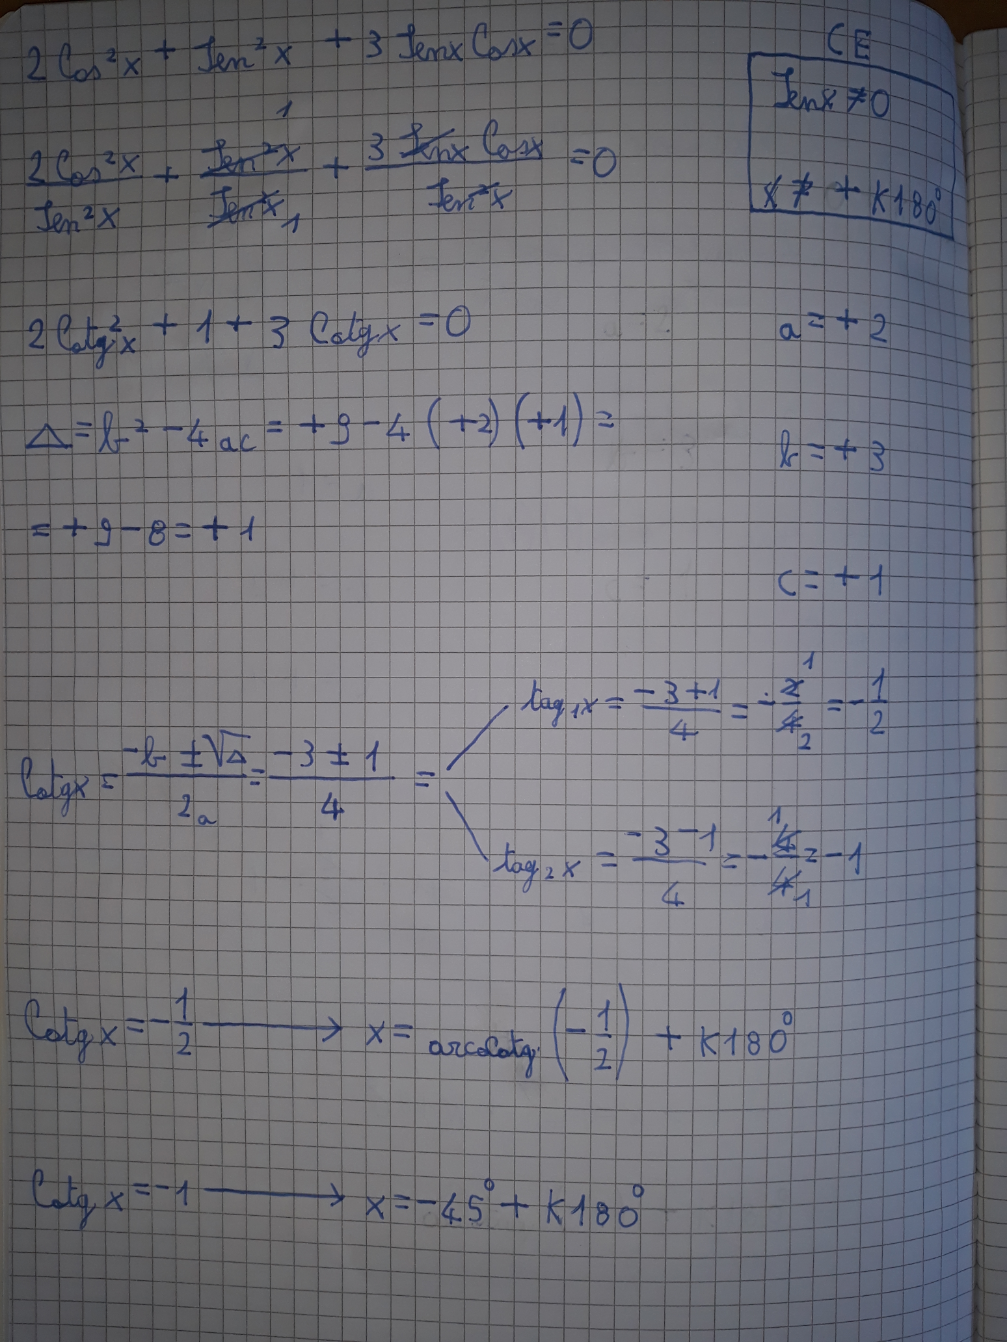 2 Cos²x + Sen²x + 3 Senx Cosx = 0
CE
Senx ≠ 0
x ≠ + K180°
2 Cos²x / Sen²x + Sen²x / Sen²x + 3 Senx Cosx / Sen²x = 0
1
1
2 Cotg²x + 1 + 3 Cotgx = 0
a = + 2
Δ = b² - 4ac = + 9 - 4 (+2) (+1) =
b = + 3
= + 9 - 8 = + 1
c = + 1
Cotgx = -b ± √Δ / 2a = -3 ± 1 / 4 =
tag₁x = -3 + 1 / 4 = - 2 / 4 = - 1 / 2
1
2
tag₂x = -3 - 1 / 4 = - 4 / 4 = -1
1
1
Cotg x = - 1 / 2 → x = arcoCotg (- 1 / 2) + K180°
Cotg x = -1 → x = -45° + K180°